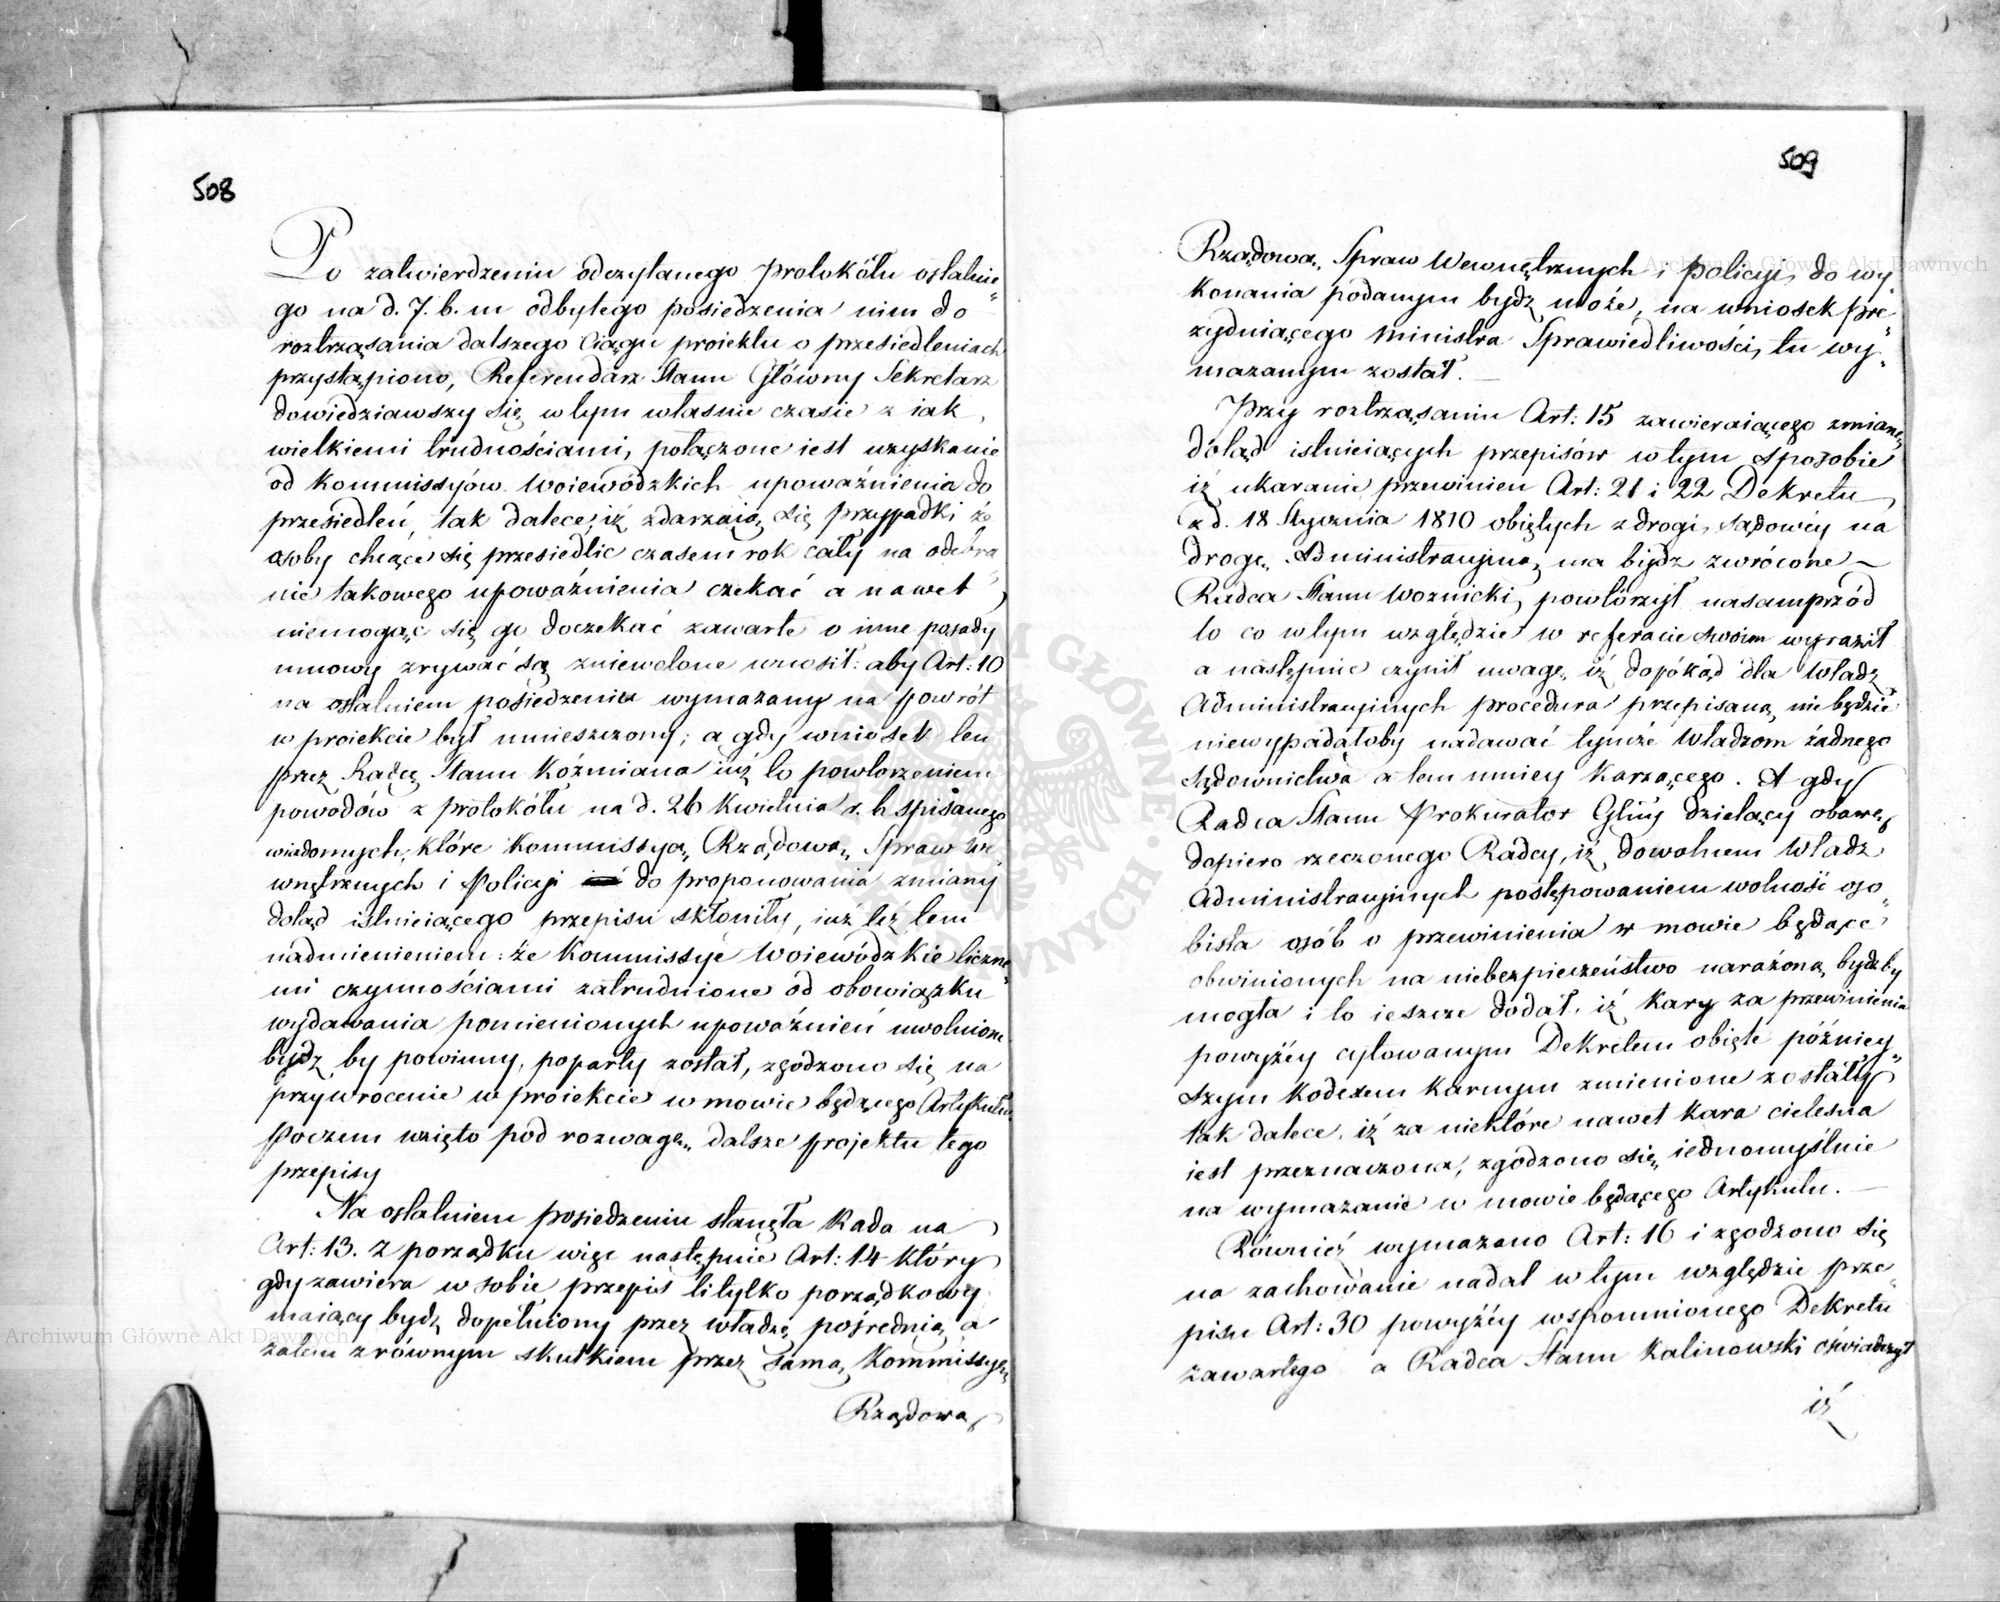 508
Po zatwierdzeniu odczytanego protokółu ostatnie„
go na d. 7. b. m odbytego posiedzenia nim do
roztrząsania dalszego ciągu proiektu o przesiedleniach
przystąpiono, Referendarz Stanu Główny Sekretarz
dowiedziawszy się w tym własnie czasie z iak
wielkiemi trudnościami, połączone iest uzyskanie
od Kommissyów Woiewódzkich upoważnienia do
przesiedleń, tak dalece, iż zdarzaią się przypadki że
osoby chcące się przesiedlic czasem rok cały na odebra
nie takowego upoważnienia czekać a nawet
niemogąc się go doczekać zawarte o inne posady
umowy zrywać są zniewolone wnosił: aby Art: 10
na ostatniem posiedzeniu wymazany na powrót
w proiekcie był umieszczony; a gdy wniosek ten
przez Radcę Stanu Koźmiana iuż to powtorzeniem
powodów z protokółu na d. 26 Kwietnia r. b spisanego
wiadomych, które Kommissyą„ Rządową„ Spraw We
wnętrznych i Policyi do proponowania zmiany
dotąd istnieiącego przepisu skłoniły, iuż też tem
nadmienieniem: że Kommissye Woiewódzkie liczne„
mi czynnościami zatrudnione od obowiązku
wydawania pomienionych upoważnień uwolnione
bydz by powinny, poparty został, zgodzono się na
przywrocenie w proiekcie w mowie będącego Artykułu
Poczem wzięto pod rozwagę„ dalsze projektu tego
przepisy
Na ostatniem posiedzeniu stanęła Rada na
Art: 13. z porządku więc następnie Art: 14 który
gdy zawiera w sobie przepis li tylko porządkowy
maiący bydz dopełniony przez władzę pośrednią a
zatem z równym skutkiem przez samą Kommissyę
Rządową
509
Rządową„ Spraw Wewnętrznych i Policyi, do wy„
konania podanym bydz może, na wniosek pre„
zyduiącego Ministra Sprawiedliwości, tu wy„
mazanym został. —
Przy roztrząsaniu Art: 15 zawieraiącego zmianę
dotąd istnieiących przepisów w tym sposobie
iż ukaranie przewinień Art: 21 i 22 Dekretu
z d. 18 Stycznia 1810 obiętych z drogi sądowéy na
drogę„ Administracyiną ma bydz zwrócone —
Radca Stanu Woznicki, powtórzył nasamprzód
to co w tym względzie w referacie swoim wyraził
a następnie czynił uwagę, iż dopókąd dla Władz
Administracyinych procedura przepisaną nie będzie
niewypadałoby nadawać tymże Władzom żadnego
sądownictwa a tem mniey karzącego. A gdy
Radca Stanu Prokurator Glny dzielący obawę
dopiero rzeczonego Radcy, iż dowolnem Władz
Administracyinych postępowaniem wolność oso„
bista osób o przewinienia w mowie będące
obwinionych na niebezpieczeństwo narażoną bydzby
mogła i to ieszcze dodał, iż kary za przewinienia
powyżéy cytowanym Dekretem obięte późniey„
szym Kodexem Karnym zmienione zostały
tak dalece, iż za niektóre nawet kara cielesna
iest przeznaczona, zgodzono się iednomyślnie
na wymazanie w mowie będącego Artykułu. —
Również wymazano Art: 16 i zgodzono się
na zachowanie nadal w tym względzie prze„
pisu Art: 30 powyżéy wspomnionego Dekretu
zawartego a Radca Stanu Kalinowski oświadczył
iż
Archiwum Główne Akt Dawnych
Archiwum Główne Akt Dawnych